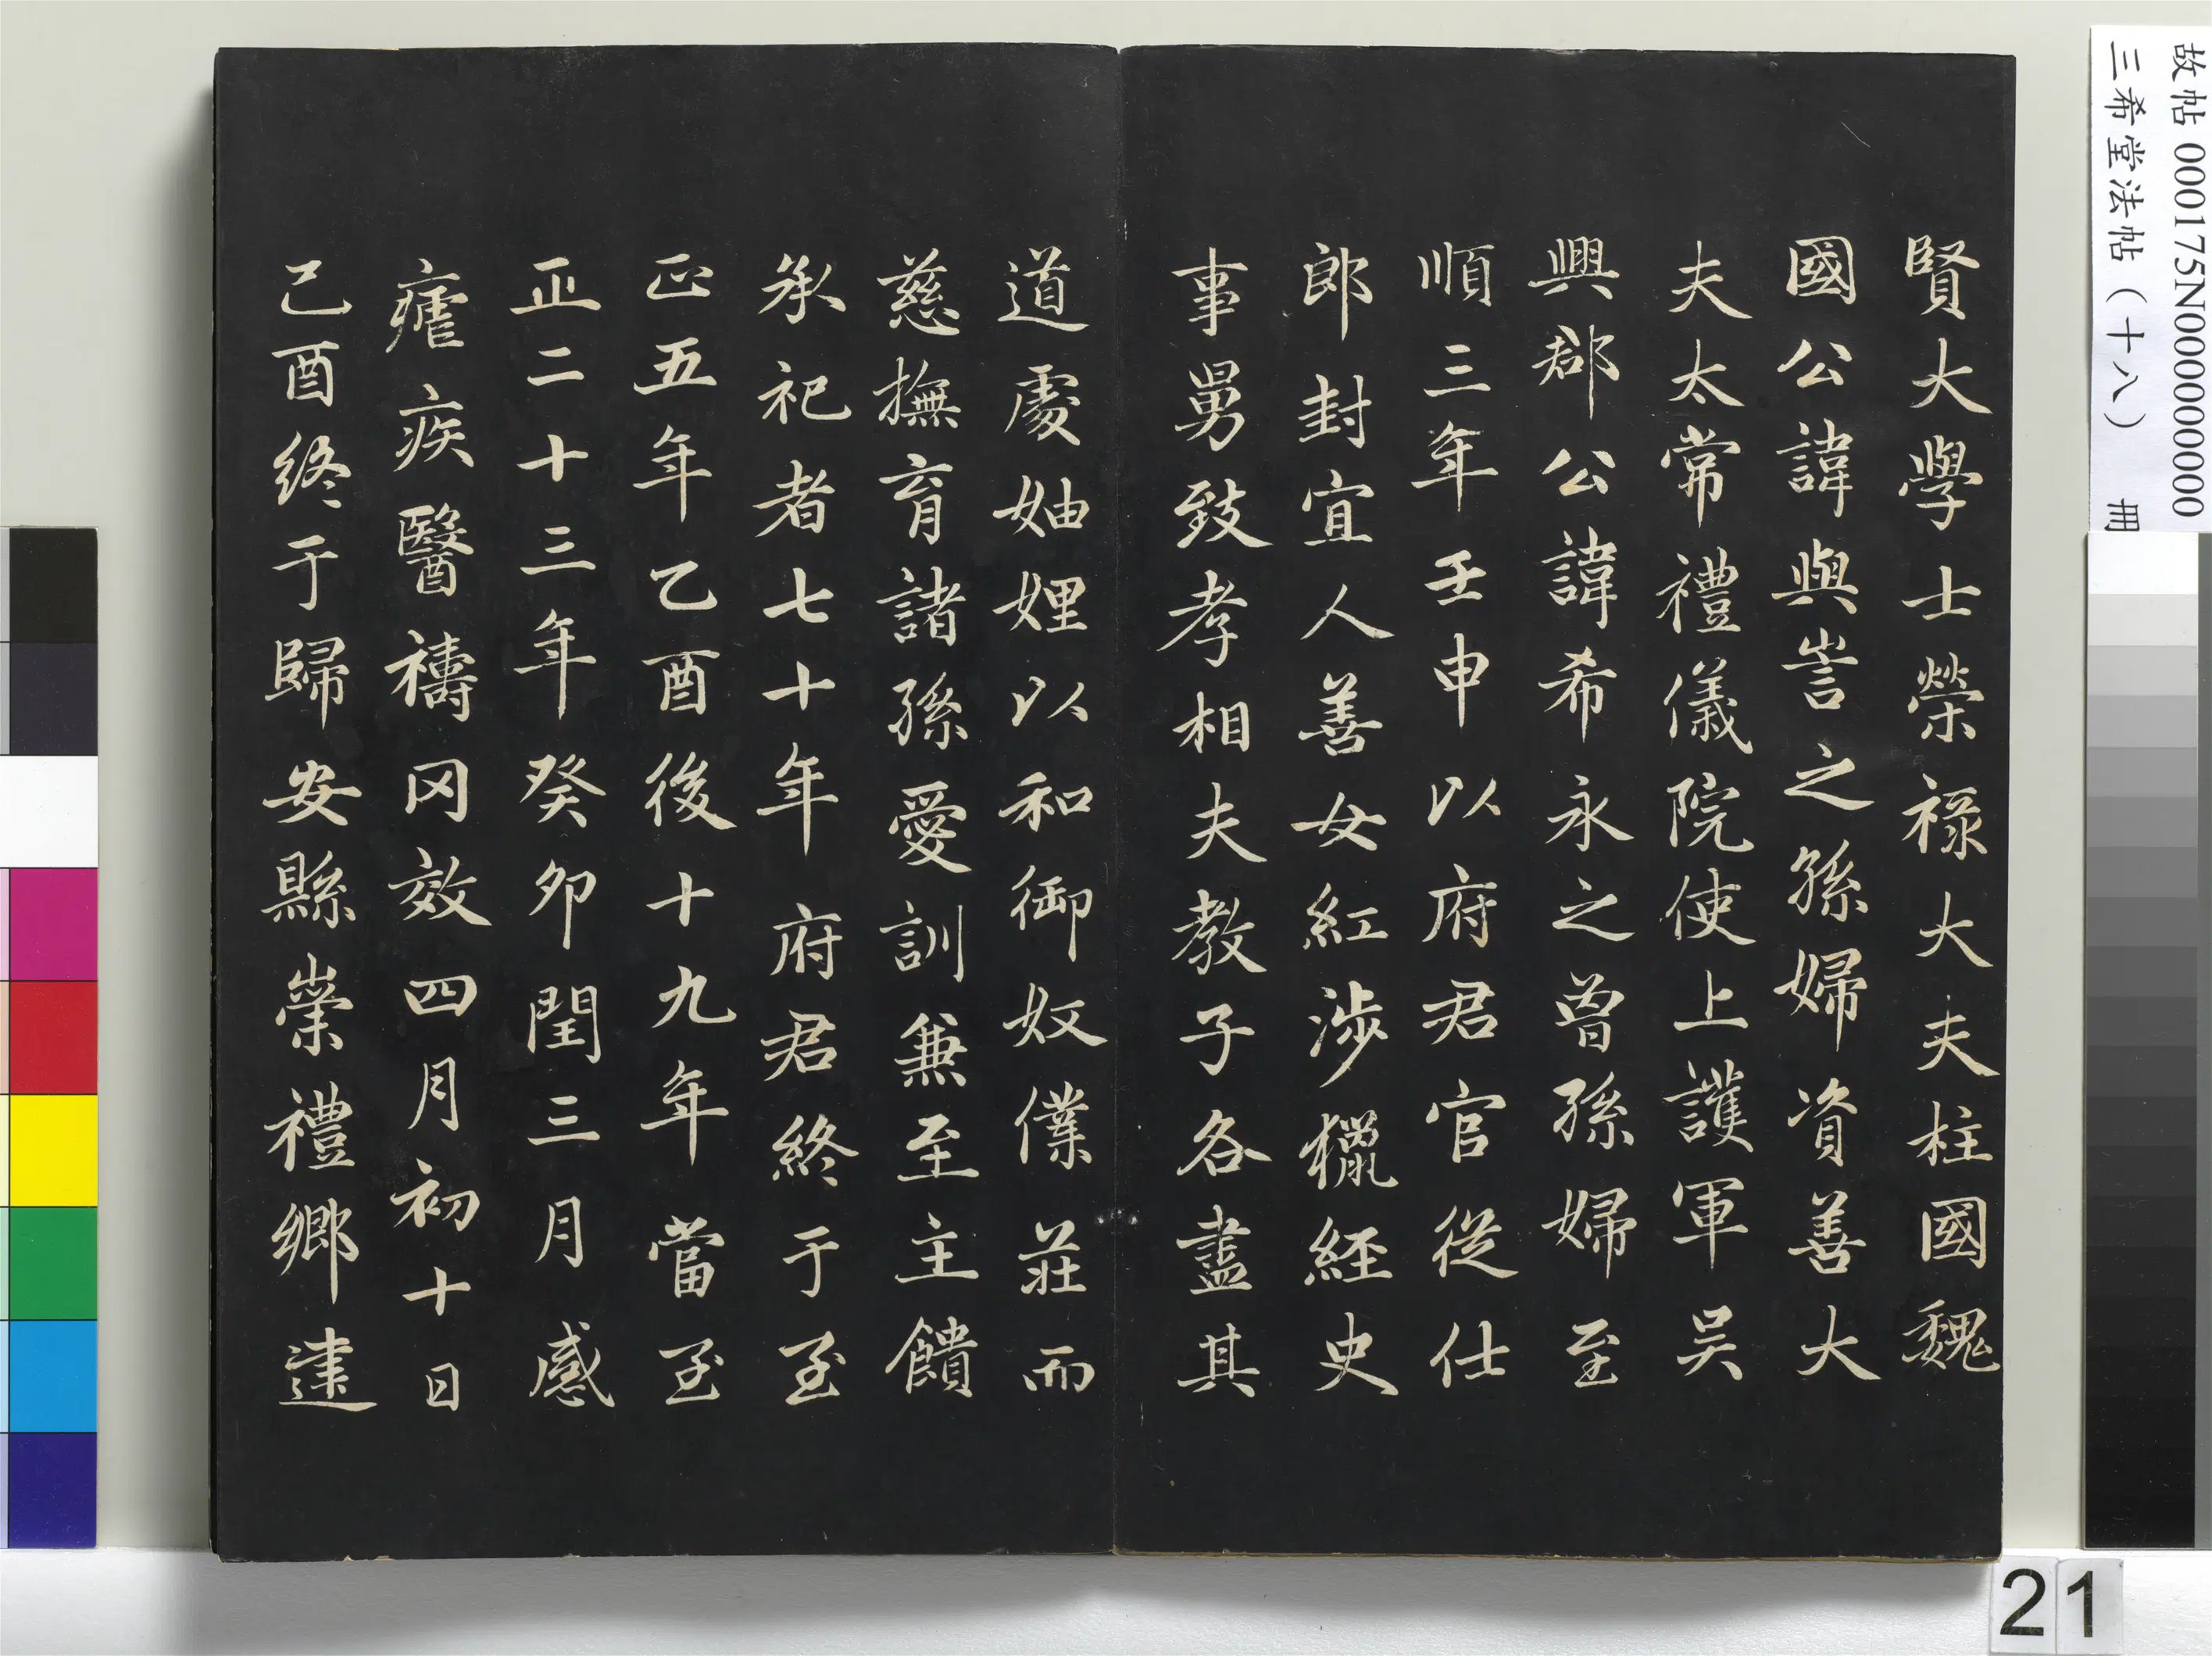 賢大學士榮祿大夫柱國魏
國公諱與訔之孫婦資善大
夫太常禮儀院使上護軍吴
興郡公諱希永之曾孫婦至
順三年壬申以府君官從仕
郎封宜人善女紅涉獵経史
事舅致孝相夫教子各盡其
道處妯娌以和御奴僕莊而
慈撫育諸孫愛訓兼至主饋
承祀者七十年府君終于至
正五年乙酉後十九年當至
正二十三年癸卯閏三月感
瘧疾醫禱罔效四月初十日
己酉終于歸安縣崇禮鄉建
故帖 000175N000000000
三希堂法帖（十八） 冊
21